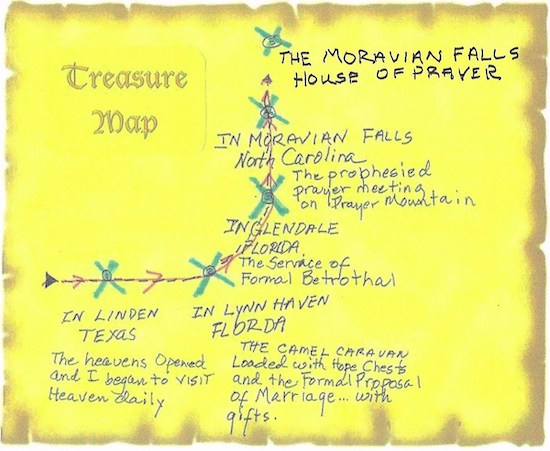 Treasure
Map
THE MORAVIAN FALLS
HOUSE OF PRAYER
IN MORAVIAN FALLS
North Carolina
The prophesied
prayer meeting
on Prayer Mountain
IN GLENDALE
FLORIDA
The Service of
Formal Betrothal
IN LINDEN
TEXAS
The heavens Opened
and I began to VISIT
Heaven daily
IN LYNN HAVEN
FLORDA
THE CAMEL CARAVAN
Loaded with Hope Chests
and the Formal Proposal
of Marriage... with
gifts.